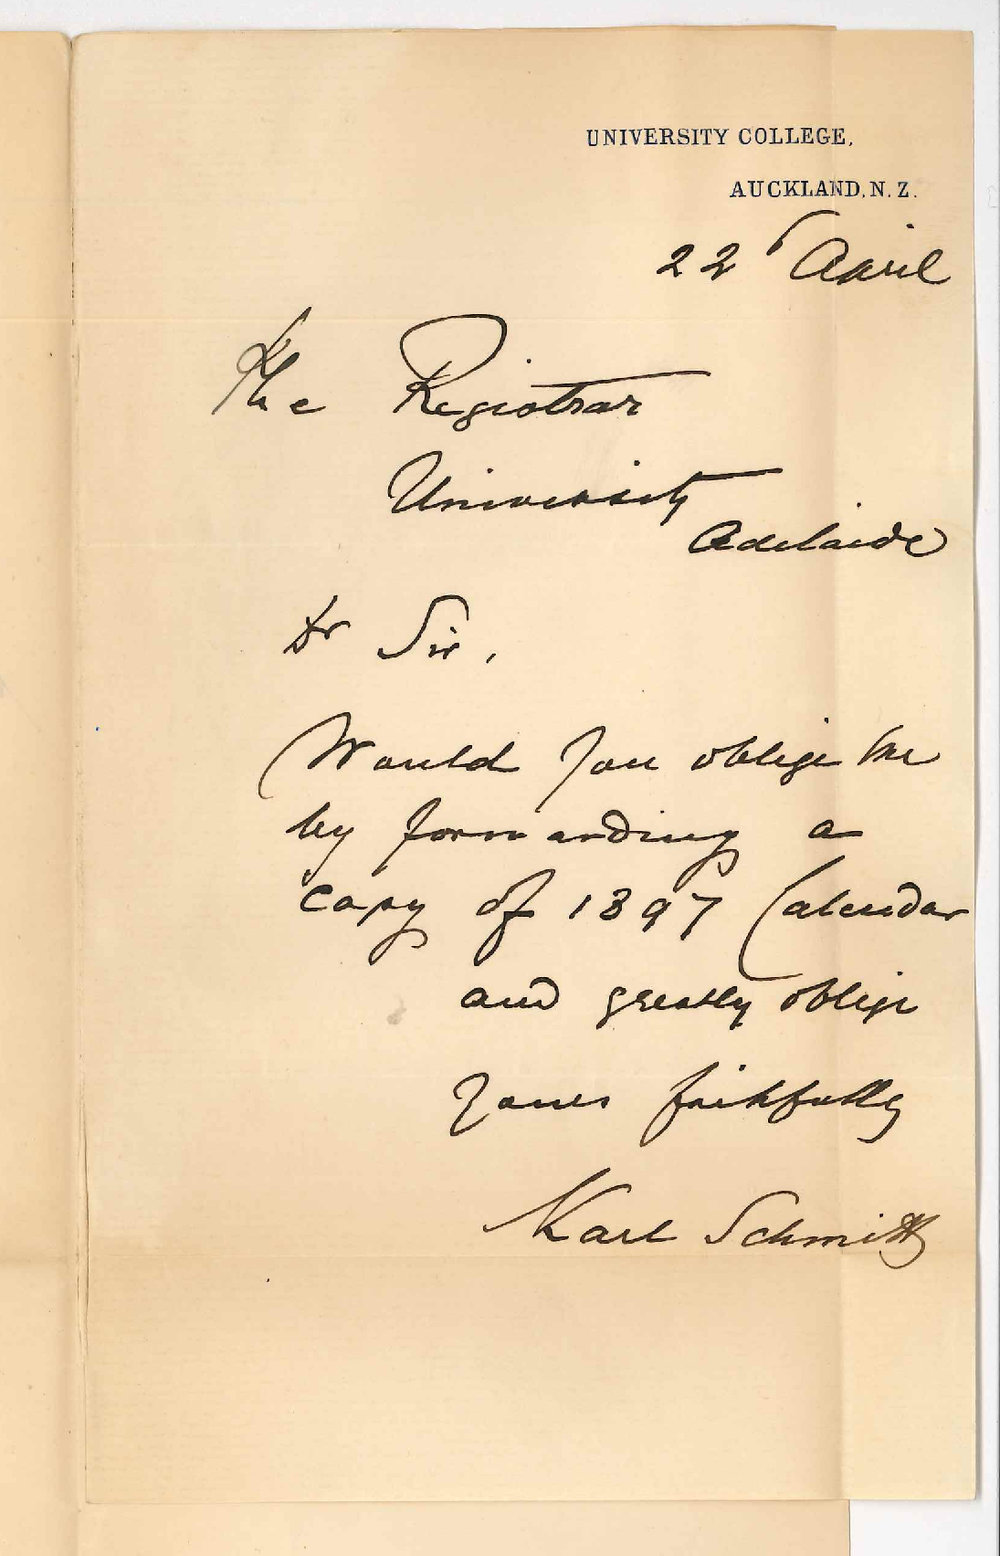 UNIVERSITY COLLEGE,
AUCKLAND, N. Z.
22 April
The Registrar
University
Adelaide
Dr Sir,
Would you oblige me
by forwarding a
copy of 1897 Calendar
and greatly oblige
Yours faithfully
Karl Schmitt